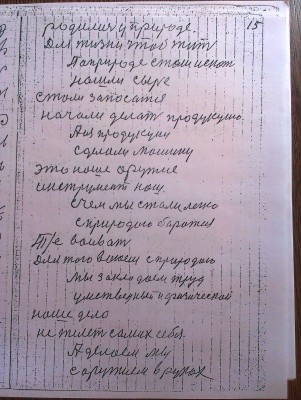 15
родились у природе.
Для жизни чтоб жит
А природе стали искат
нашли сыре
стали запосатся
начали делат продукцию.
Аиз продукции
сделали машину
это наше оружие
инструмент наш.
с чем мы стали легко
с природою баротся
т/е воеват
Для того воюем с природою
мы закладаем труд
умственый и физический
наше дело
не жалет самих себя.
А делаем мы
с оружием в руках